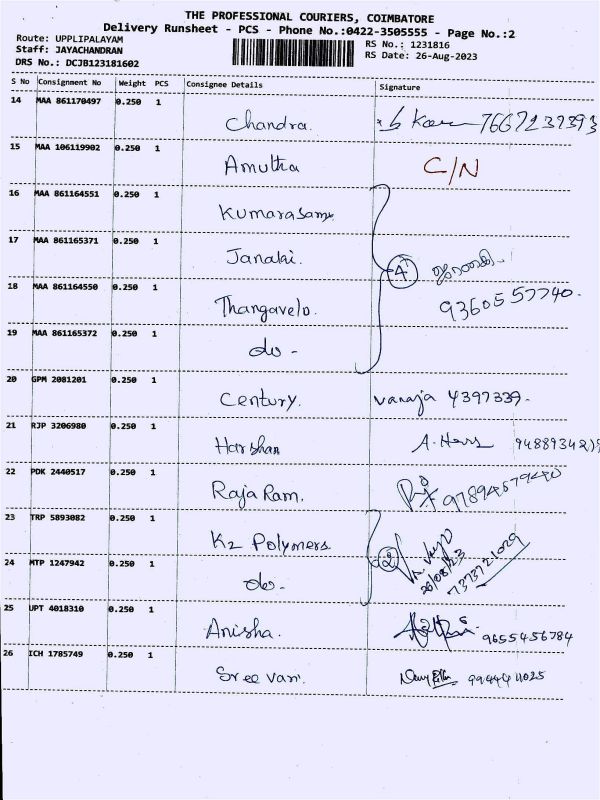 THE PROFESSIONAL COURIERS, COIMBATORE
Delivery Runsheet - PCS - Phone No.:0422-3505555 - Page No.:2
Route: UPPLIPALAYAM
Staff: JAYACHANDRAN
DRS No.: DCJB123181602
RS No.: 1231816
RS Date: 26-Aug-2023
S No Consignment No Weight PCS Consignee Details Signature
14 MAA 861170497 0.250 1 Chandra. 7667237393
15 MAA 106119902 0.250 1 Amutha C/N
16 MAA 861164551 0.250 1 Kumarasamy
17 MAA 861165371 0.250 1 Janaki. 4 ஜானகி
18 MAA 861164550 0.250 1 Thangavelo. 9360557740.
19 MAA 861165372 0.250 1 do -
20 GPM 2081201 0.250 1 Century. Vanaja 4397339.
21 RJP 3206980 0.250 1 Harshan A. 94889342
22 PDK 2440517 0.250 1 Raja Ram. 9789457940
23 TRP 5893082 0.250 1 K2 Polymers 2
24 MTP 1247942 0.250 1 do. 26/08/23 7373721029
25 UPT 4018310 0.250 1 Anisha. 9655456784
26 ICH 1785749 0.250 1 Sree Vari. 9944411025